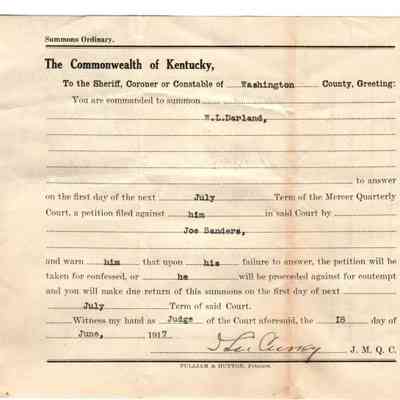 Summons Ordinary.
The Commonwealth of Kentucky,
To the Sheriff, Coroner or Constable of Washington County, Greeting:
You are commanded to summon
W.L.Darland,
to answer
on the first day of the next July Term of the Mercer Quarterly
Court, a petition filed against him in said Court by
Joe Sanders,
and warn him that upon his failure to answer, the petition will be
taken for confessed, or he will be proceeded against for contempt
and you will make due return of this summons on the first day of next
July Term of said Court.
Witness my hand as Judge of the Court aforesaid, the 18 day of
June, 1917
J. M. Q. C.
PULLIAM & HUTTON, Printers.